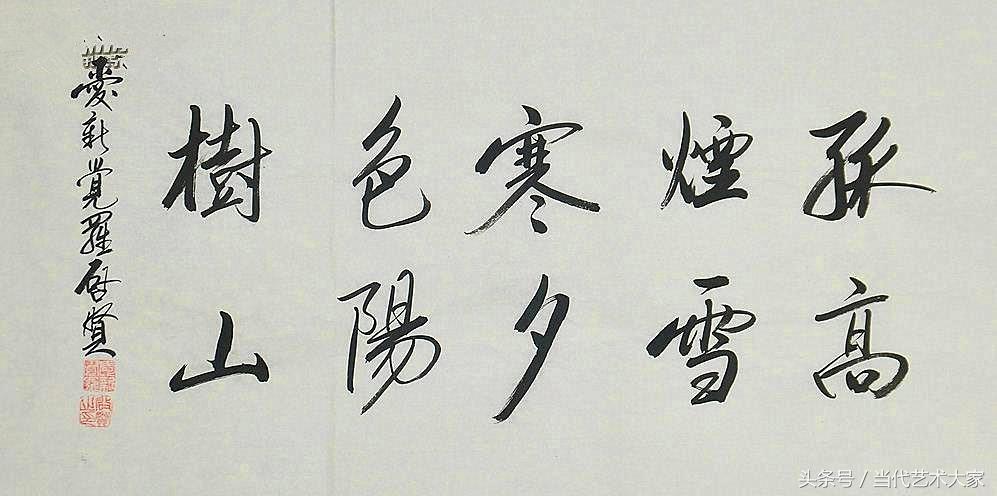 孤煙寒色樹
高雪夕陽山
愛新覚羅启賢
头条号 / 当代艺术大家